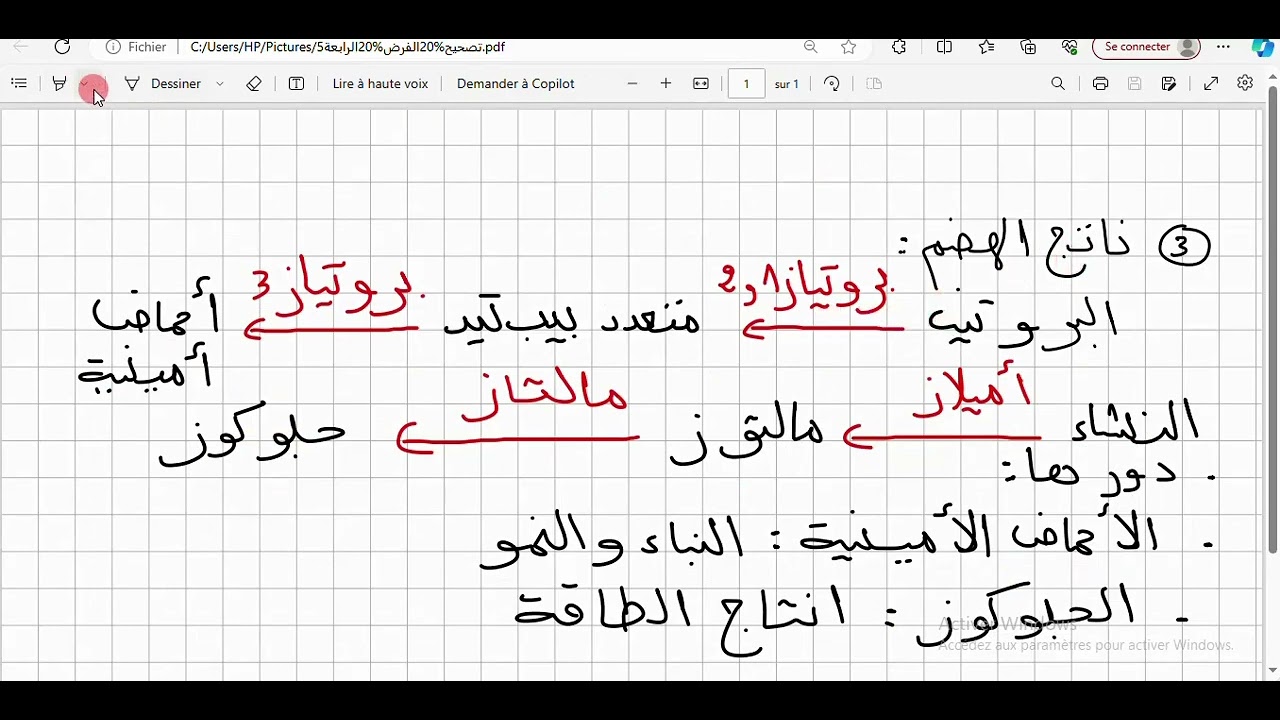 Fichier C:/Users/HP/Pictures/5تصحيح%20الفرض%20الرابعة.pdf Se connecter
Dessiner Lire à haute voix Demander à Copilot 1 sur 1
③ ناتج الهضم :
بروتياز 1 و 2 بروتياز 3
البروتين متعدد بيبتيد أحماض
أمينية
أميلاز مالتاز
النشاء مالتوز جلوكوز
. دورها :
. الأحماض الأمينية : البناء والنمو
. الجلوكوز : انتاج الطاقة
Activer Windows
Accédez aux paramètres pour activer Windows.